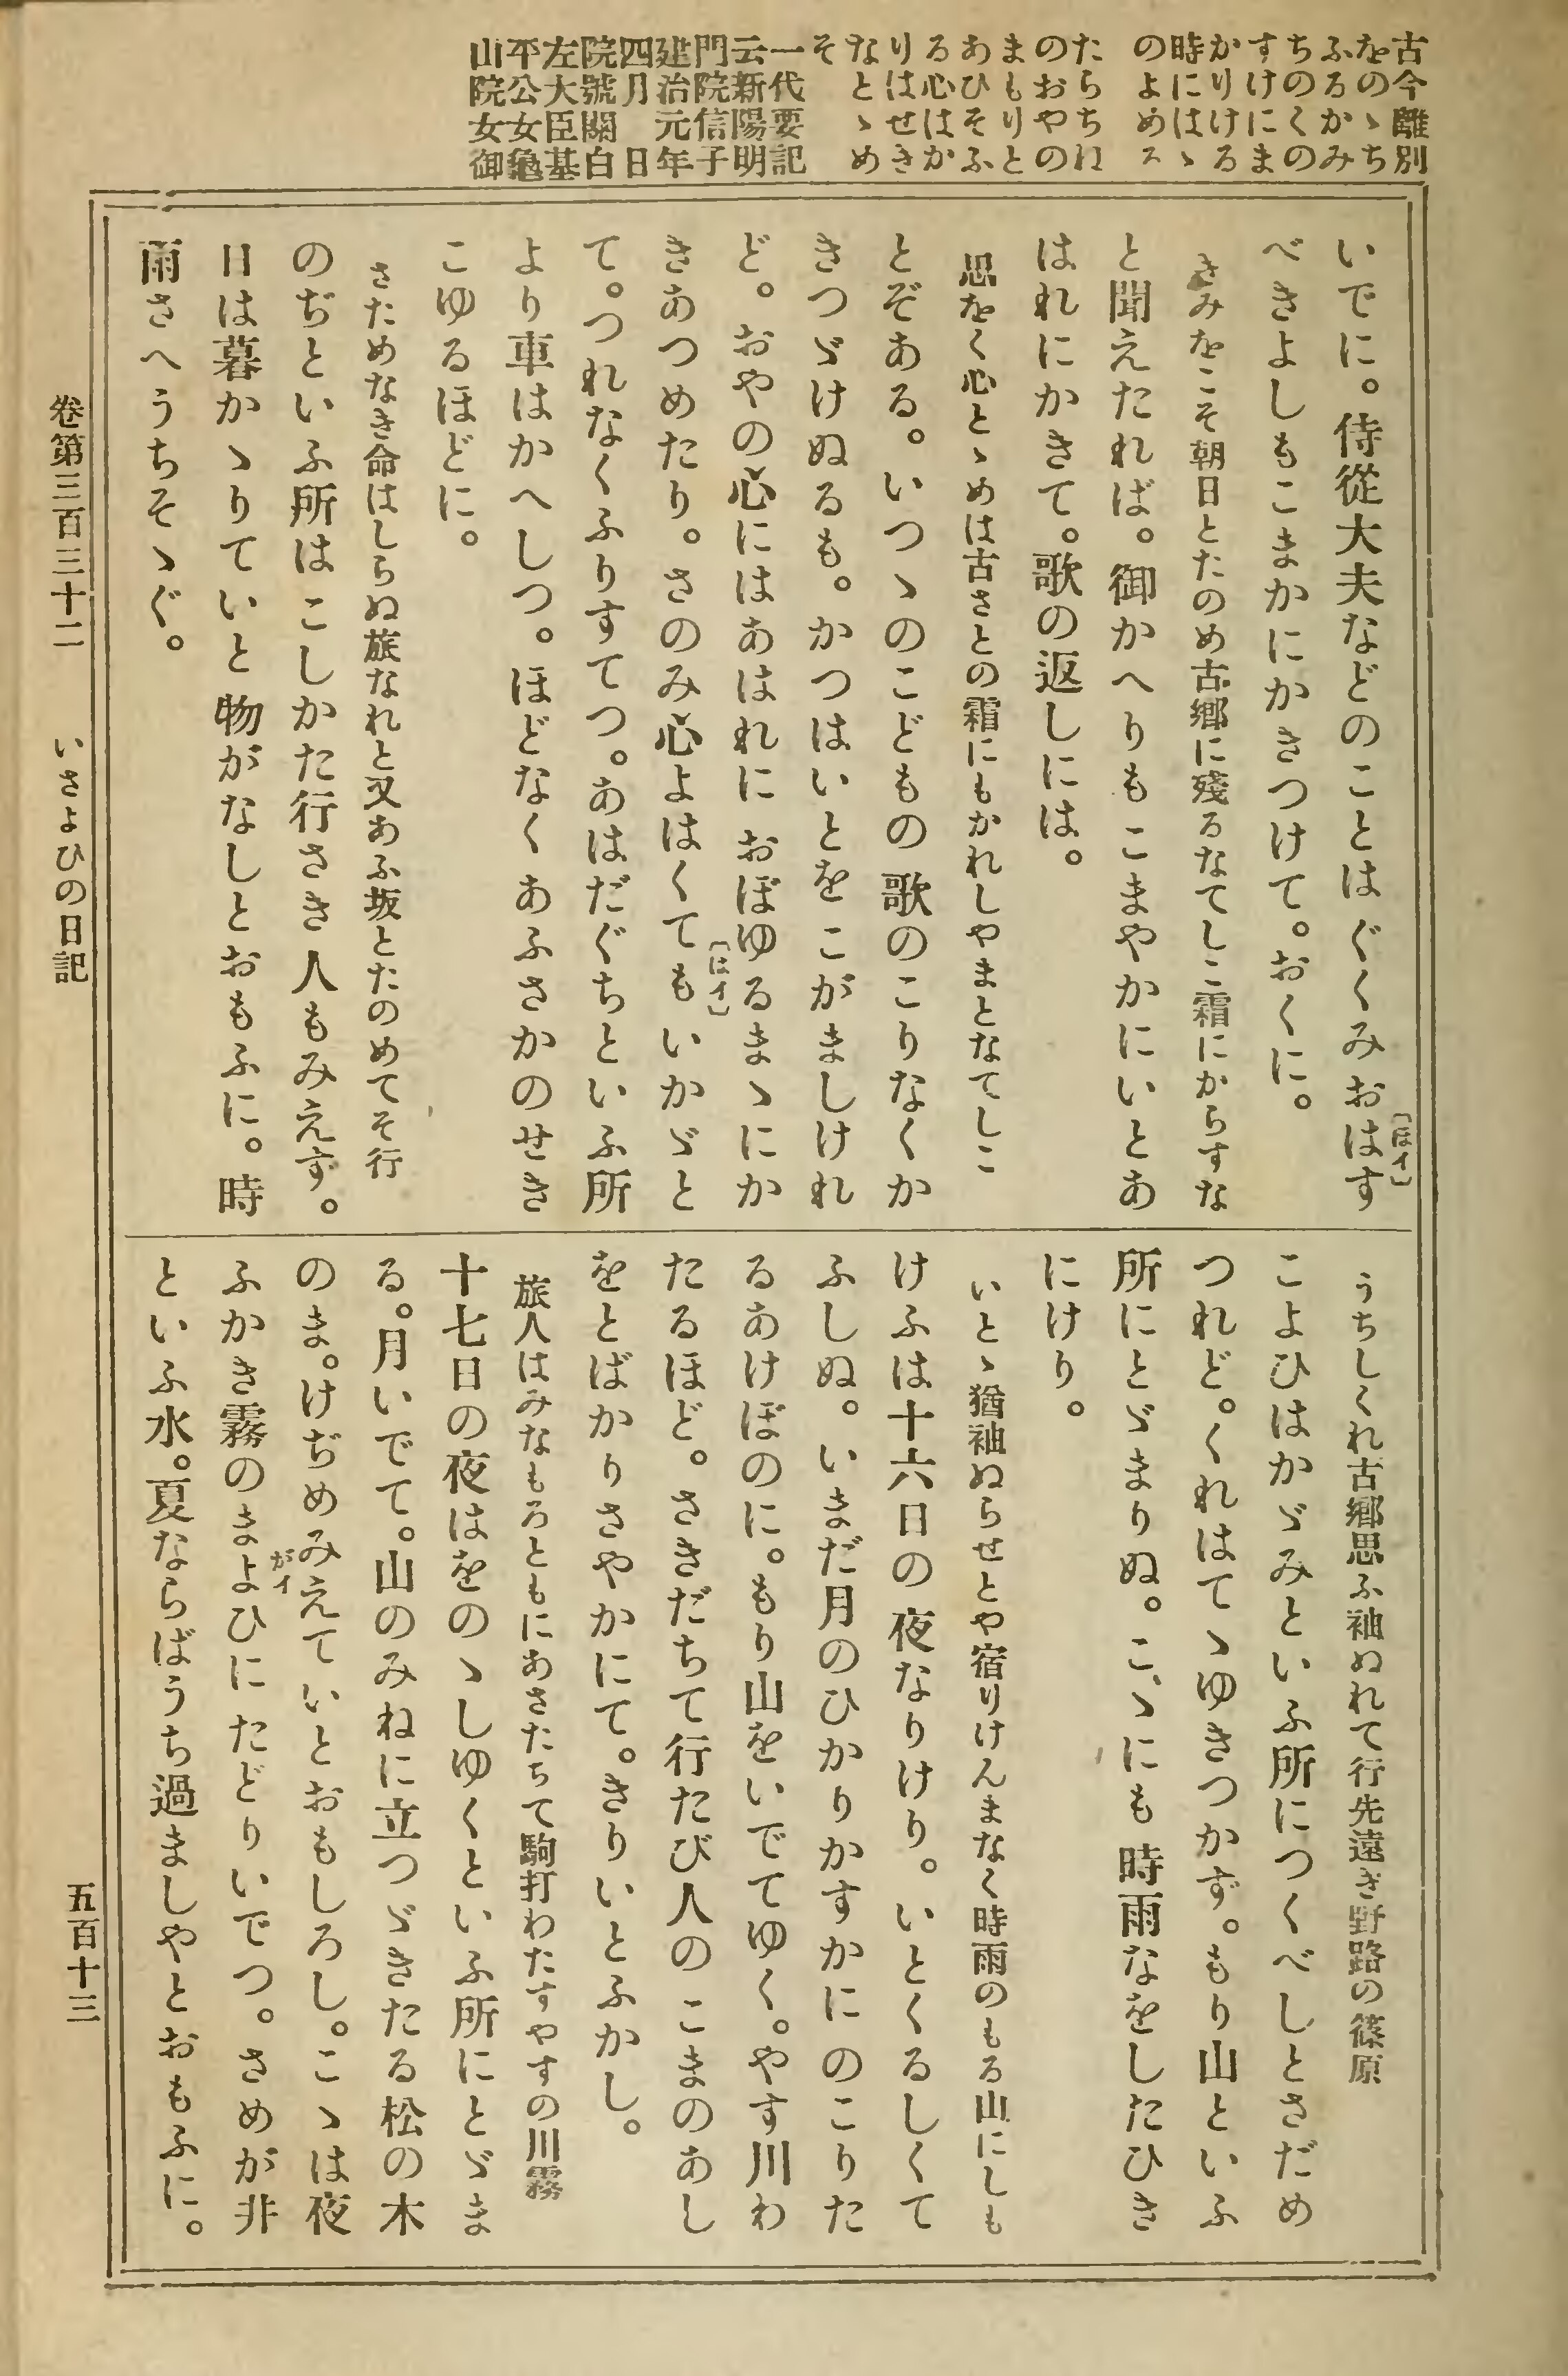 古今離別
をのゝち
ふるかみ
ちのくの
すけにま
かりける
時にはゝ
のよめる
たらちね
のおやの
まもりと
あひそふ
る心はか
りはせき
なとゝめ
そ
一代要記
云新陽明
門院信子
建治元年
四月 日
院號關白
左大臣基
平公女龜
山院女御
いでに。侍從大夫などのことはぐくみおはす
〔ほイ〕
べきよしもこまかにかきつけて。おくに。
きみをこそ朝日とたのめ古郷に殘るなてしこ霜にからすな
と聞えたれば。御かへりもこまやかにいとあ
はれにかきて。歌の返しには。
思をく心とゝめは古さとの霜にもかれしやまとなてしこ
とぞある。いつゝのこどもの歌のこりなくか
きつゞけぬるも。かつはいとをこがましけれ
ど。おやの心にはあはれにおぼゆるまゝにか
きあつめたり。さのみ心よはくてもいかゞと
〔はイ〕
て。つれなくふりすてつ。あはだぐちといふ所
より車はかへしつ。ほどなくあふさかのせき
こゆるほどに。
さためなき命はしらぬ旅なれと又あふ坂とたのめてそ行
のぢといふ所はこしかた行さき人もみえず。
日は暮かゝりていと物がなしとおもふに。時
雨さへうちそゝぐ。
うちしくれ古郷思ふ袖ぬれて行先遠き野路の篠原
こよひはかゞみといふ所につくべしとさだめ
つれど。くれはてゝゆきつかず。もり山といふ
所にとゞまりぬ。こゝにも時雨なをしたひき
にけり。
いとゝ猶袖ぬらせとや宿りけんまなく時雨のもる山にしも
けふは十六日の夜なりけり。いとくるしくて
ふしぬ。いまだ月のひかりかすかにのこりた
るあけぼのに。もり山をいでてゆく。やす川わ
たるほど。さきだちて行たび人のこまのあし
をとばかりさやかにて。きりいとふかし。
旅人はみなもろともにあさたちて駒打わたすやすの川霧
十七日の夜はをのゝしゆくといふ所にとゞま
る。月いでて。山のみねに立つゞきたる松の木
のま。けぢめみえていとおもしろし。こゝは夜
ふかき霧のまよひにたどりいでつ。さめが非
がイ
といふ水。夏ならばうち過ましやとおもふに。
卷第三百三十二 いさよひの日記 五百十三